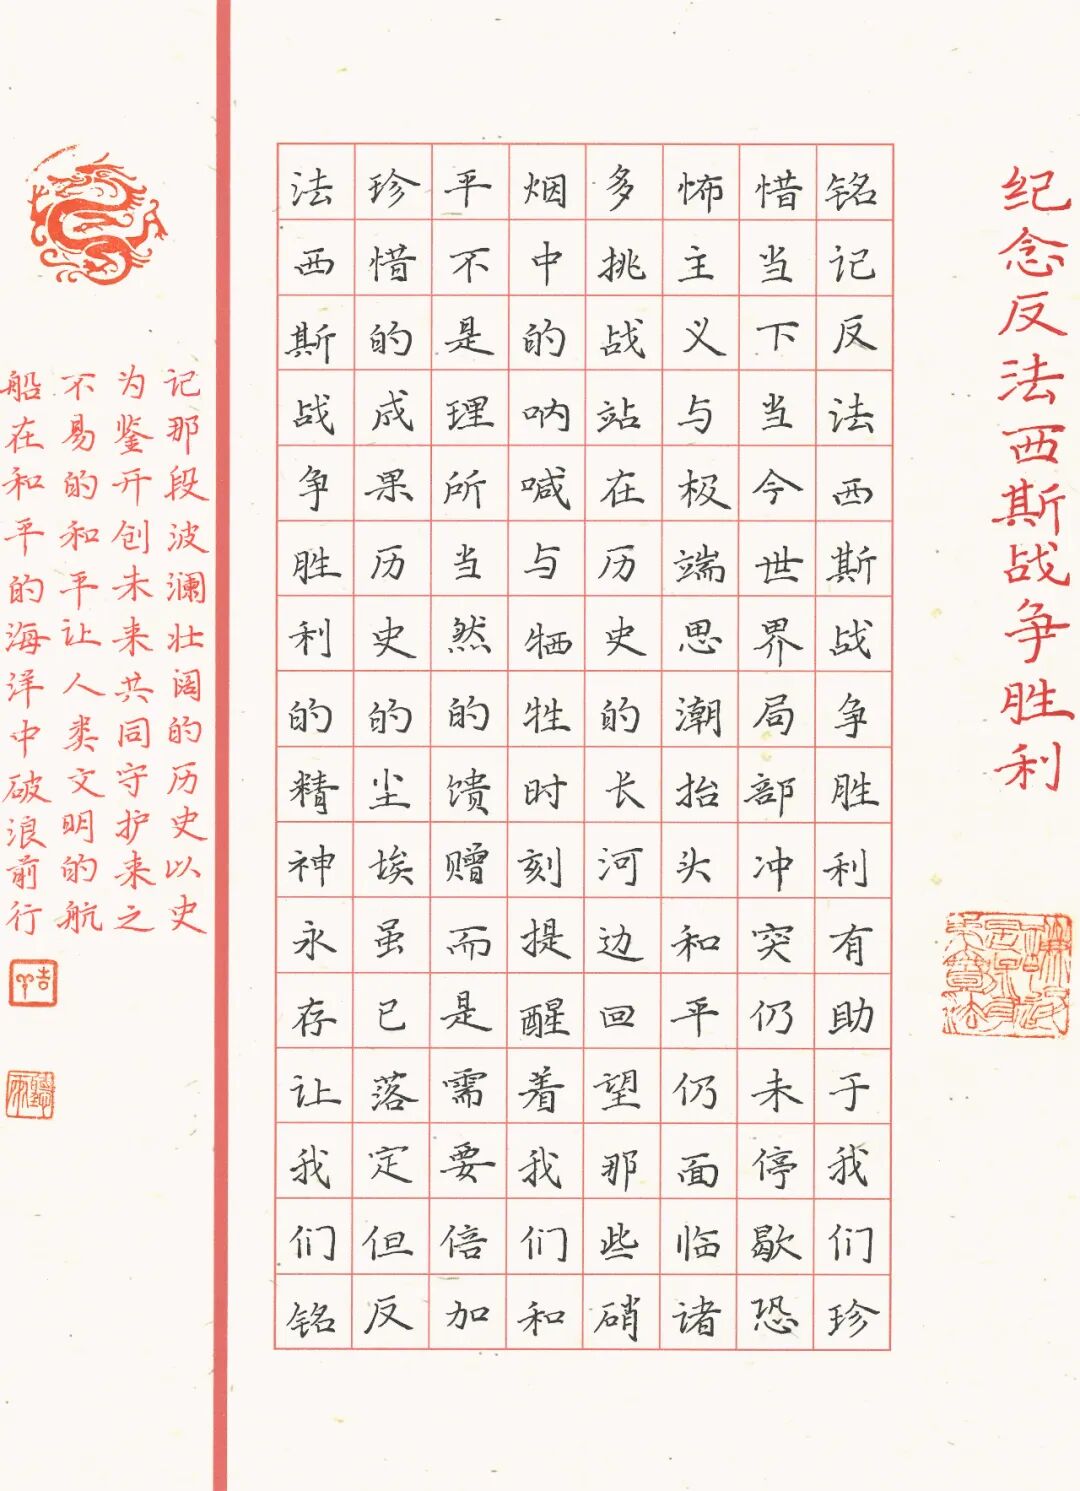 纪念反法西斯战争胜利
铭记反法西斯战争胜利有助于我们珍
惜当下当今世界局部冲突仍未停歇恐
怖主义与极端思潮抬头和平仍面临诸
多挑战站在历史的长河边回望那些硝
烟中的呐喊与牺牲时刻提醒着我们和
平不是理所当然的馈赠而是需要倍加
珍惜的成果历史的尘埃虽已落定但反
法西斯战争胜利的精神永存让我们铭
记那段波澜壮阔的历史以史
为鉴开创未来共同守护来之
不易的和平让人类文明的航
船在和平的海洋中破浪前行